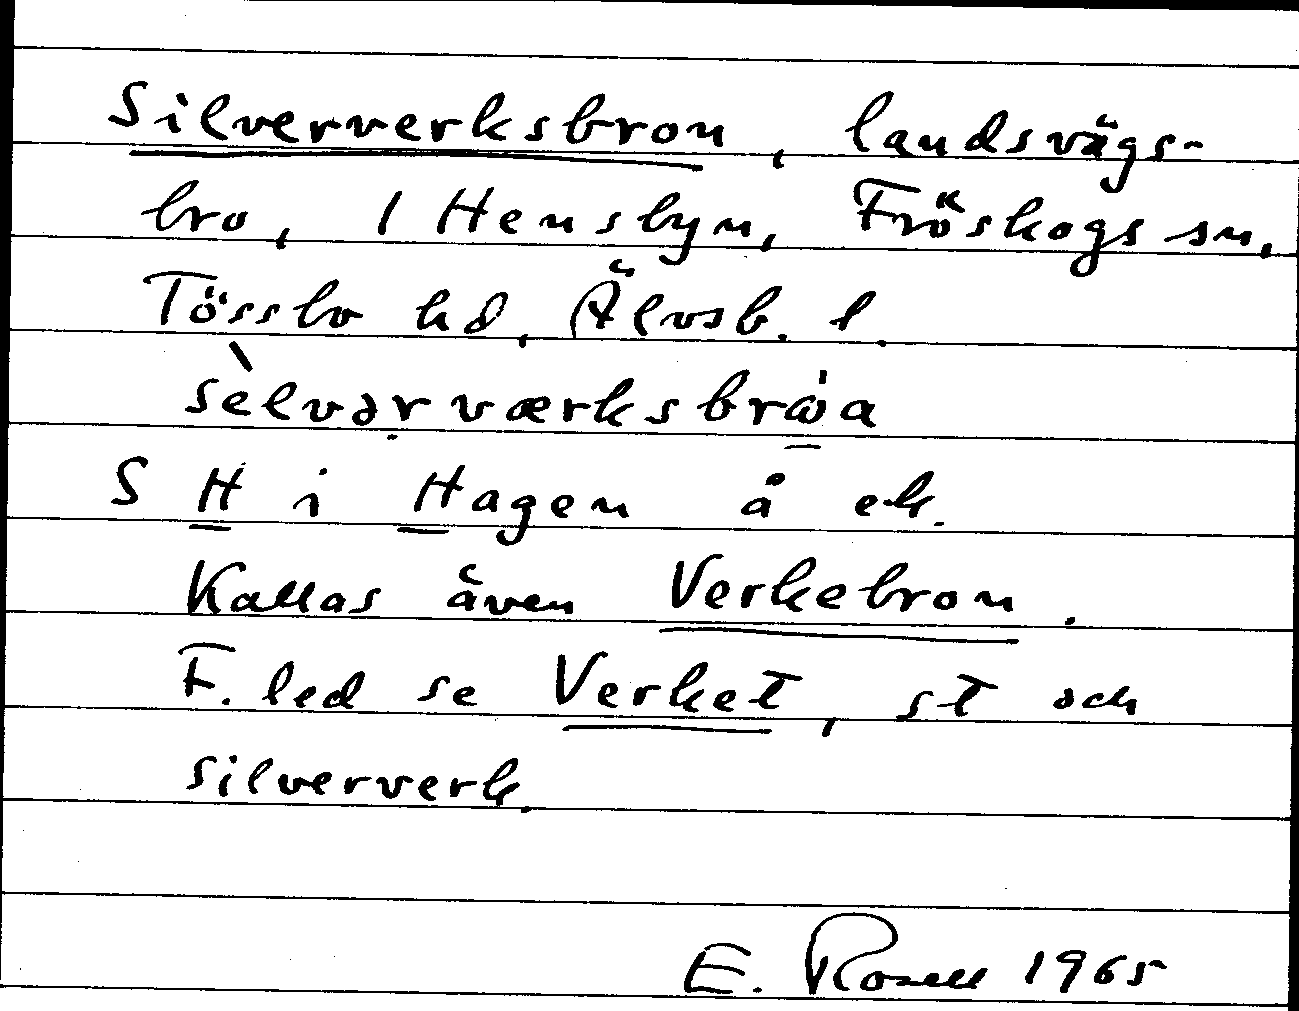 Silververksbron, landsvägs-
bro, 1 Hensbyn, Fröskogs sn,
Tössbo hd, Älvsb. l.
sèlvər værksbrω̇a
S H i Hagen å ek.
Kallas även Verkebron.
F. led se Verket, st och
silververk.
E. Rosell 1965